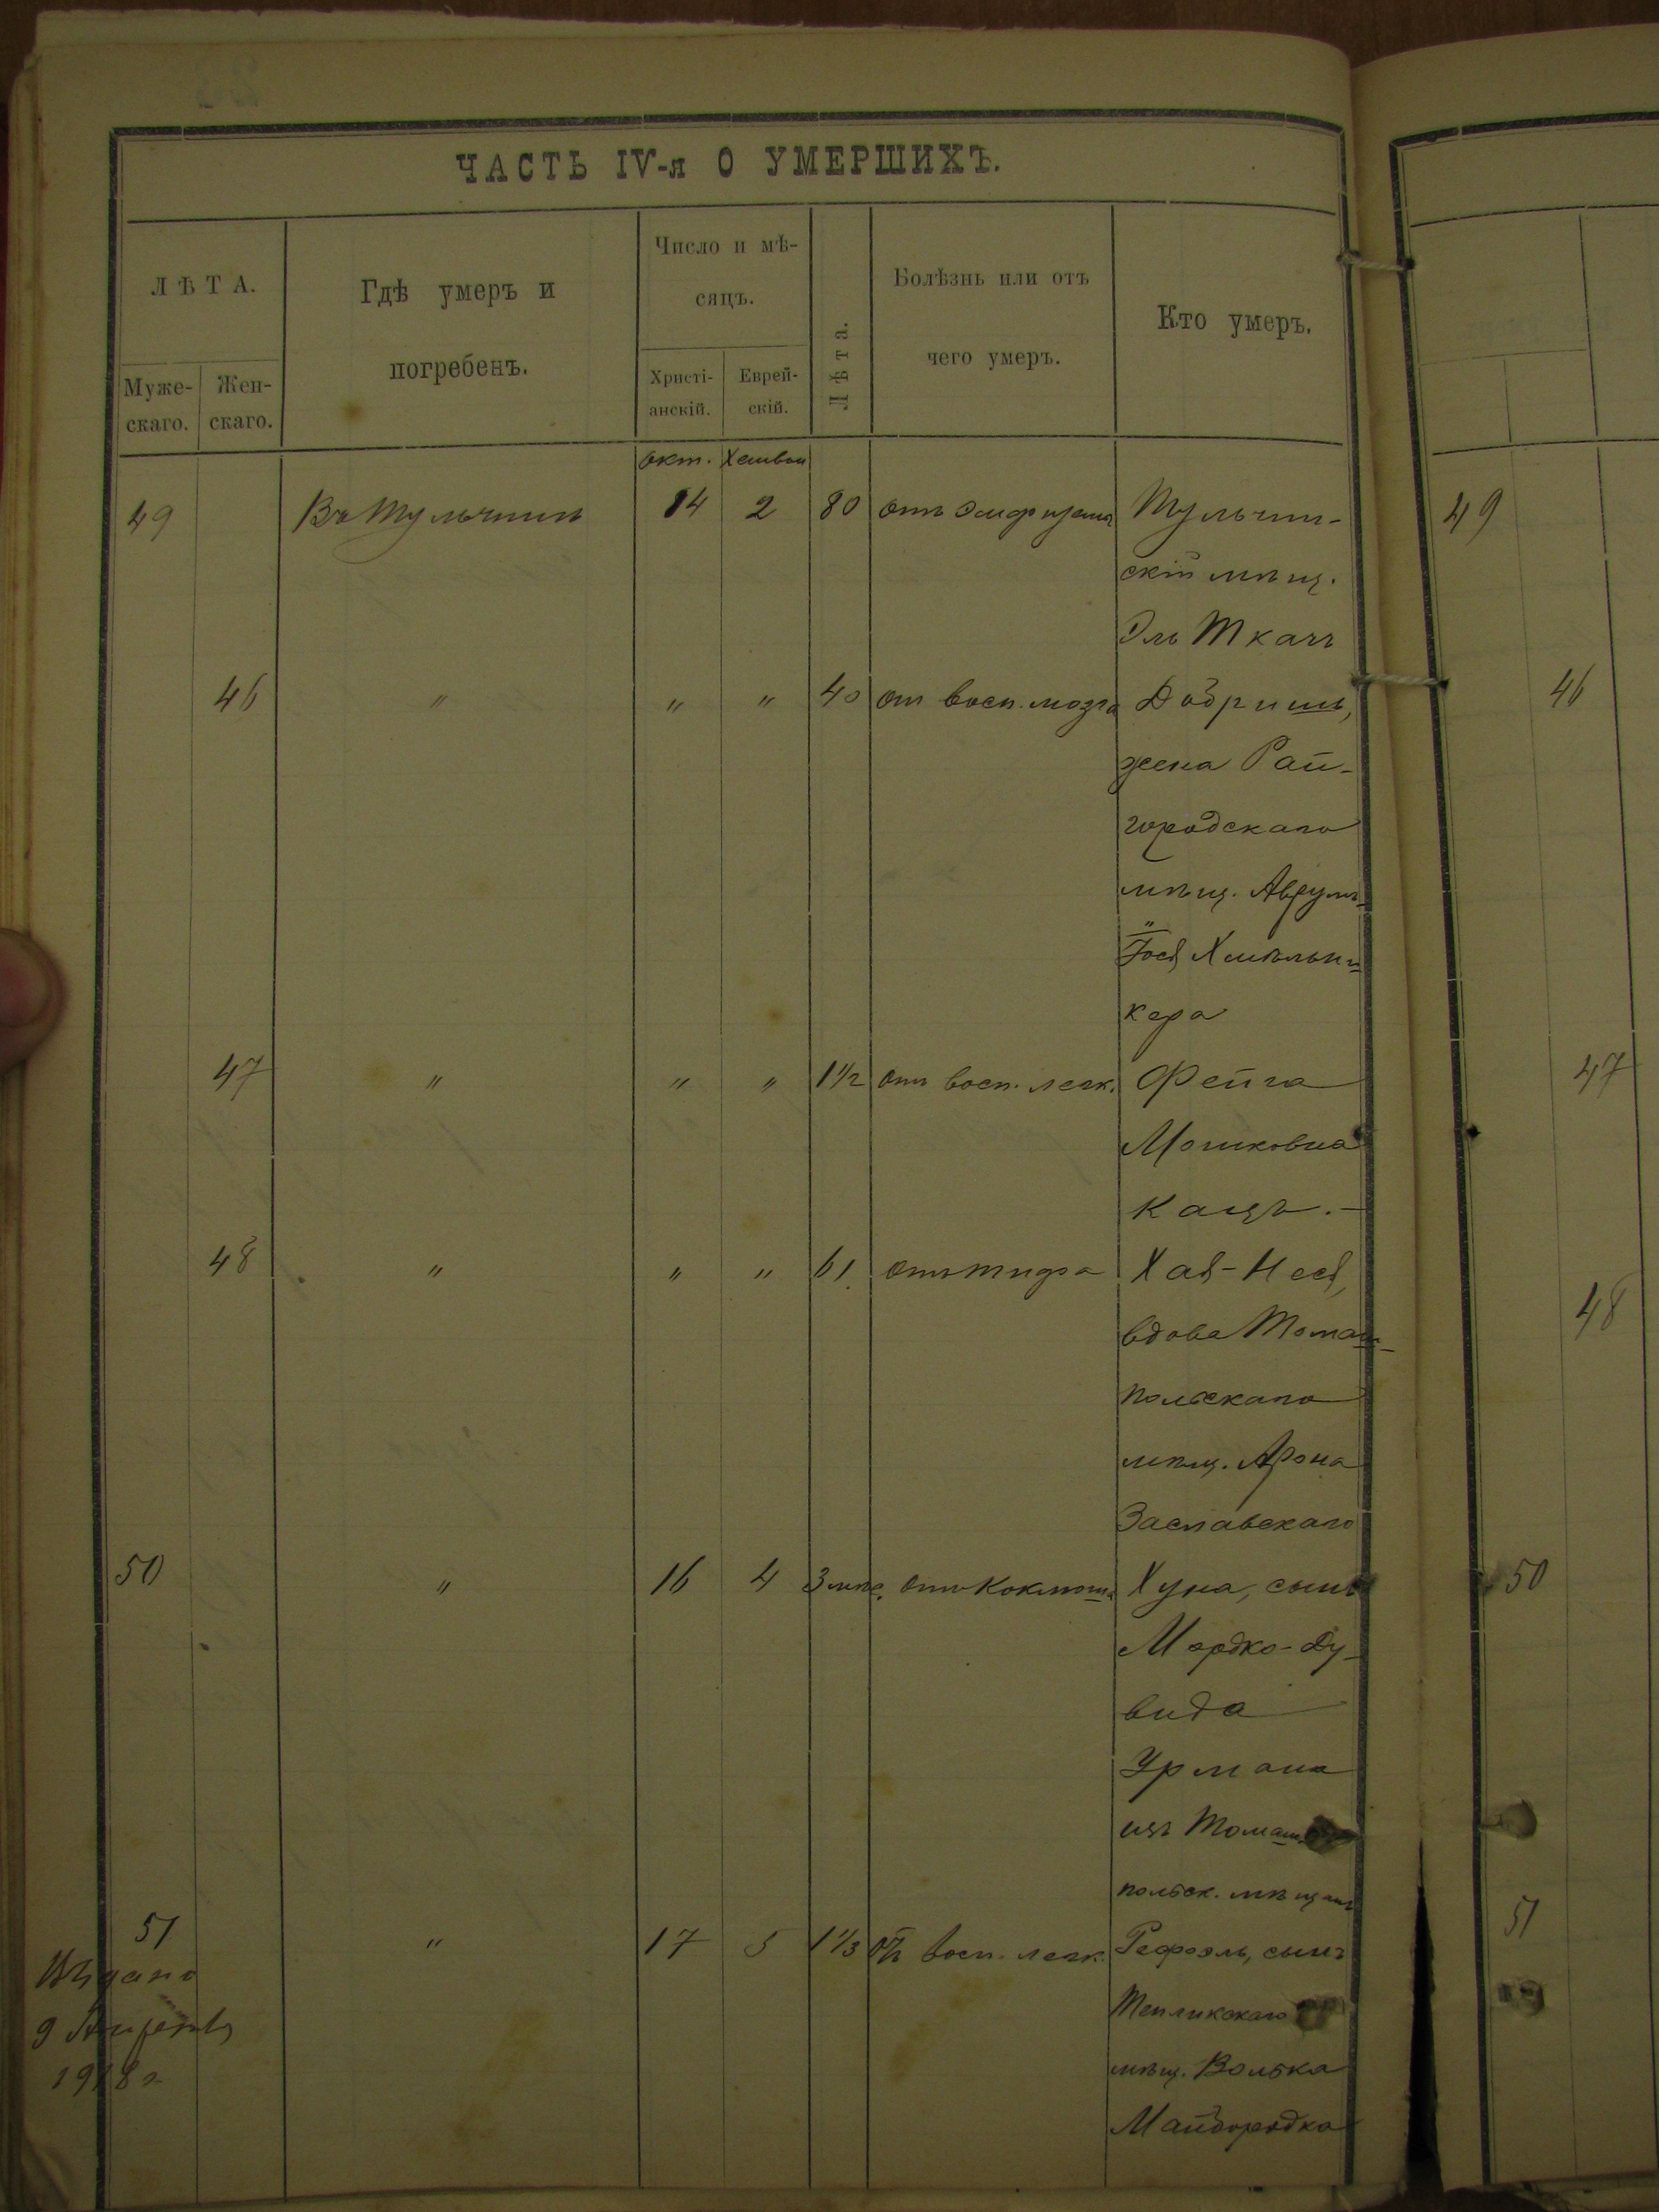 ЧАСТЬ IV-я О УМЕРШИХЪ.
ЛѢТА.
Муже-
скаго.
Жен-
скаго.
Гдѣ умеръ и
погребенъ.
Число и мѣ-
сяцъ.
Христі-
анскій.
Еврей-
скій.
Лѣта.
Болѣзнь или отъ
чего умеръ.
Кто умеръ.
Окт. Хешван
49 Въ Тульчинѣ 14 2 80 отъ эмфиземы Тульчин- 49
скій мѣщ.
Эль Ткачъ
46 " " " 40 от восп. мозга Добришъ, 46
жена Рай-
городскаго
мѣщ. Аврумъ-
Іося Хмѣльни-
кера
47 " " " 1 1/2 отъ восп. легк. Фейга 47
Мошковна
Кацъ.-
48 " " " 61 отъ тифа Хая-Неся, 48
вдова Томаш-
польскаго
мѣщ. Арона
Заславскаго
50 " 16 4 3 мѣс. отъ коклюша Хуна, сынъ 50
Мордко-Ду-
вида
Урмана
изъ Томаш-
польск. мѣщанъ
51 " 17 5 1 1/3 отъ восп. легк. Рефоэль, сынъ 51
Тепликскаго
мѣщ. Волька
Майдородка
9
1918 г.